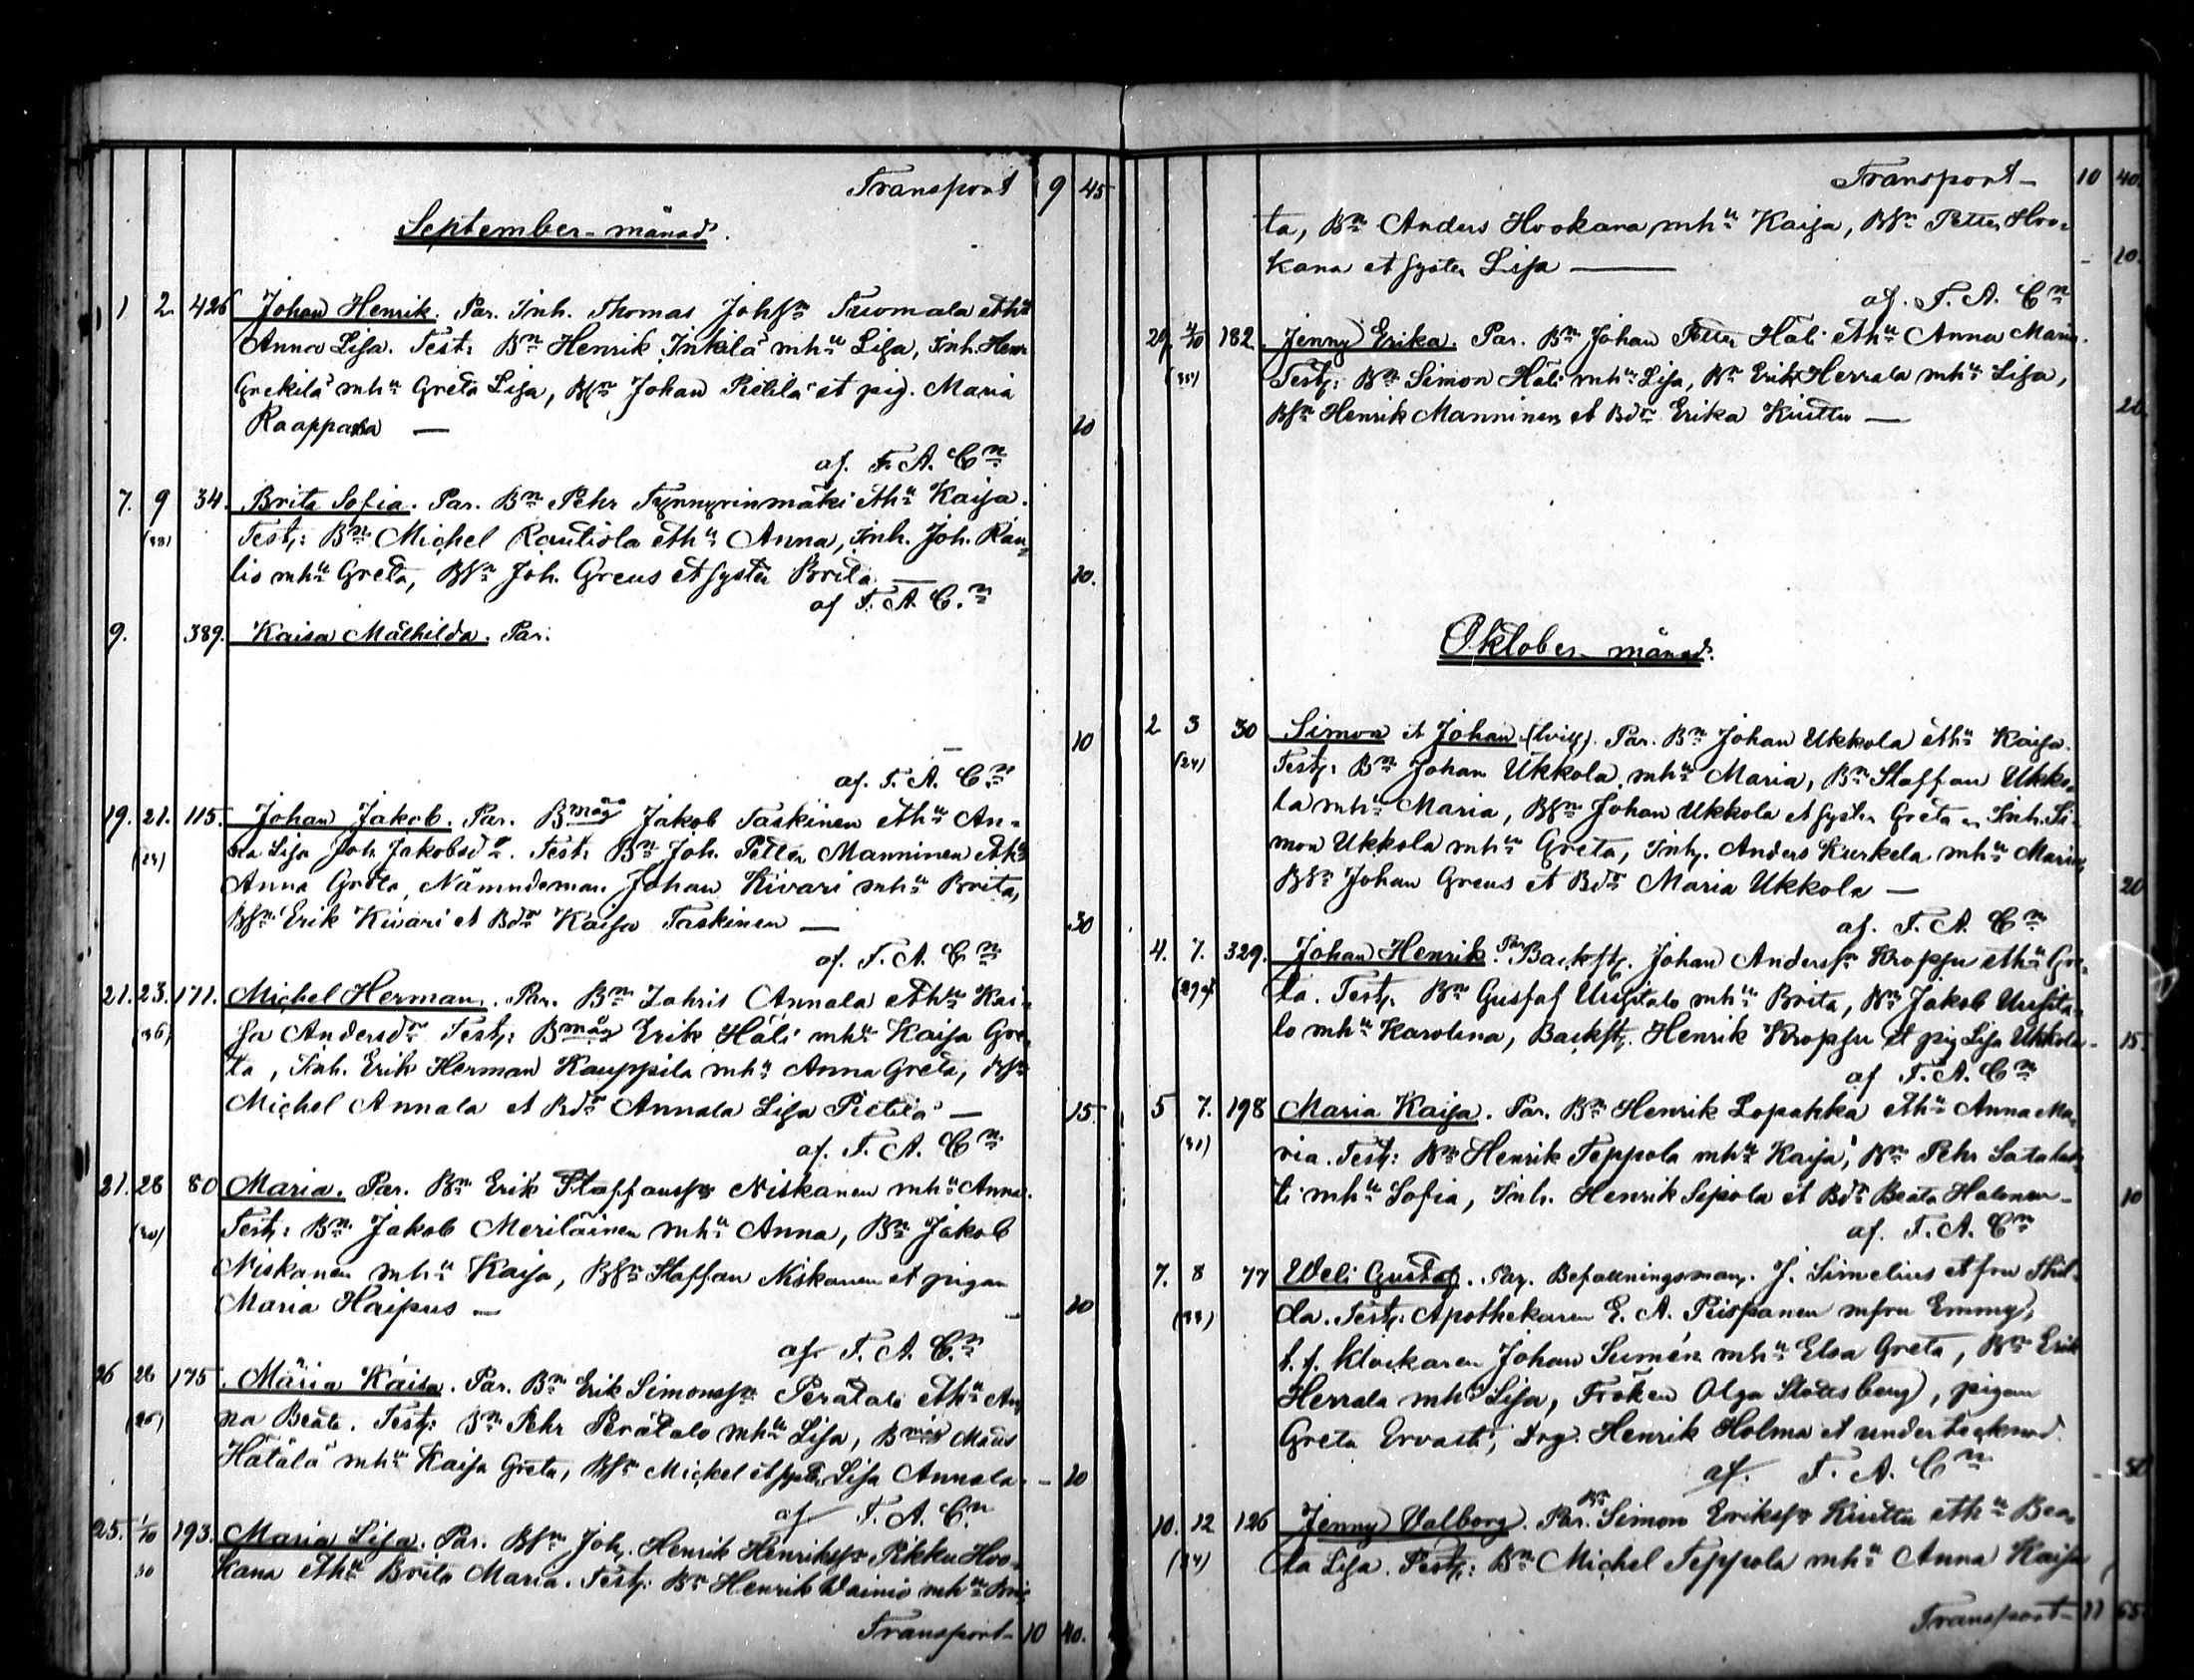 Transport 9 45
September-månad.
1 2 426 Johan Henrik. Par. Inh. Thomas Johsn Tuomala et hu
Anna Lisa. Test: Bn Henrik Inkilä mhu Lisa, Inh. Henr
Grekilä mhu Greta Lisa, Bsn Johan Pietilä et pig. Maria
Raappana — 20
af. F. A. Cn
7. 9 34. Brita Sofia. Par. Bn Pehr Tynnyrinmäki et hu Kaisa.
(38) Test: Bn Michel Rautiola et hu Anna, Inh. Joh. Rau-
tio mhu Greta, Bsn Joh. Greus et syster Brita — 20.
af F. A. Cn
9. 389. Kaisa Mathilda. Par.
— 10
af. F. A. Cn
19. 21. 115. Johan Jakob. Par. Bmåg Jakob Taskinen et hu An-
(24) na Lisa Joh. Jakobsdr. Test: Bn Joh. Petter Manninen et hu
Anna Greta, Nämndeman Johan Kivari mhu Brita,
Bsn Erik Kivari et Bdr Kaisa Taskinen — 30
af. F. A. Cn
21. 23. 171. Michel Herman. Par. Bn Zakris Annala et hu Kai-
(36) sa Andersdr Test: Bmåg Erik Häli mhu Kaisa Gre-
ta, Inh. Erik Herman Kauppila mhu Anna Greta, Bsn
Michel Annala et Bdr Annala Lisa Pietilä — 15.
af. F. A. Cn
21. 28 80 Maria. Par. Bn Erik Staffanssn Niskanen mhu Anna.
(40) Test: Bn Jakob Meriläinen mhu Anna, Bn Jakob
Niskanen mhu Kaisa, Bsn Staffan Niskanen et pigan
Maria Haipus — 20
af F. A. Cn
26 28 175 Maria Kaisa. Par. Bn Erik Simonssn Perätalo et hu An-
(26) na Beata. Test: Bn Pehr Perätalo mhu Lisa, Bmåg Mats
Hätälä mhu Kaisa Greta, Bsn Mickel et syster Lisa Annala. - 20
af F. A. Cn
25. 1/10 193. Maria Lisa. Par. Bsn Joh. Henrik Henrikssn Pikku Hoo-
30 kana et hu Brita Maria. Test: Bn Henrik Wainio mhu Bri-
Transport- 10 40.
Transport- 10 40.
ta, Bn Anders Hookana mhu Kaisa, Bsn Petter Hoo-
kana et syster Lisa — - 20.
af. F. A. Cn
29. 4/10 182. Jenny Erika. Par. Bn Johan Petter Häli et hu Anna Maria.
(35) Test: Bn Simon Häli mhu Lisa, Bn Erik Herrala mhu Lisa,
Bsn Henrik Manninen et Bdr Erika Kiuttu — 20
Oktober-månad.
2 3 30 Simon et Johan (tvill). Par. Bn Johan Ukkola et hu Kaisa.
(24) Test: Bn Johan Ukkola mhu Maria, Bn Staffan Ukko-
la mhu Maria, Bsn Johan Ukkola et syster Greta Inh. Si-
mon Ukkola mhu Greta, Inh. Anders Kurkela mhu Maria,
Bsn Johan Greus et Bdr Maria Ukkola — 20
af. F. A. Cn
4. 7. 329. Johan Henrik. Par. Backst. Johan Anderssn Kropsu et hu Gre-
ta. Test. Bn Gustaf Uusitalo mhu Brita, Bn Jakob Uusita-
lo mhu Karolina, Backst. Henrik Kropsu et pig Lisa Ukkola - 15.
af F. A. Cn
5 7. 198 Maria Kaisa. Par. Bn Henrik Lopakka et hu Anna Ma-
(31) ria. Test: Bn Henrik Teppola mhu Kaisa, Bn Pehr
mhu Sofia, Inh. Henrik Sepola et Bdr Beata Halonen - 10
af. F. A. Cn
7. 8 77 Weli Gustaf. Par. Befallningsman. J. Simelius et fru
(33) da. Test: Apothekaren E. A. Piispanen mfru Emmy,
t. f. Klockaren Johan Sumén mhu Elsa Greta, Bn Erik
Herrala mhu Lisa, Fröken Olga Stadsberg, pigan
Greta Ervasti, Drg. Henrik Holma et undertecknad.
af. F. A. Cn - 50
10. 12 126 Jenny Valborg. Par. Bn Simon Erikssn Kiuttu et hu Bea-
(24) ta Lisa. Test: Bn Michel Teppola mhu Anna Kaisa
Transport- 11 65.